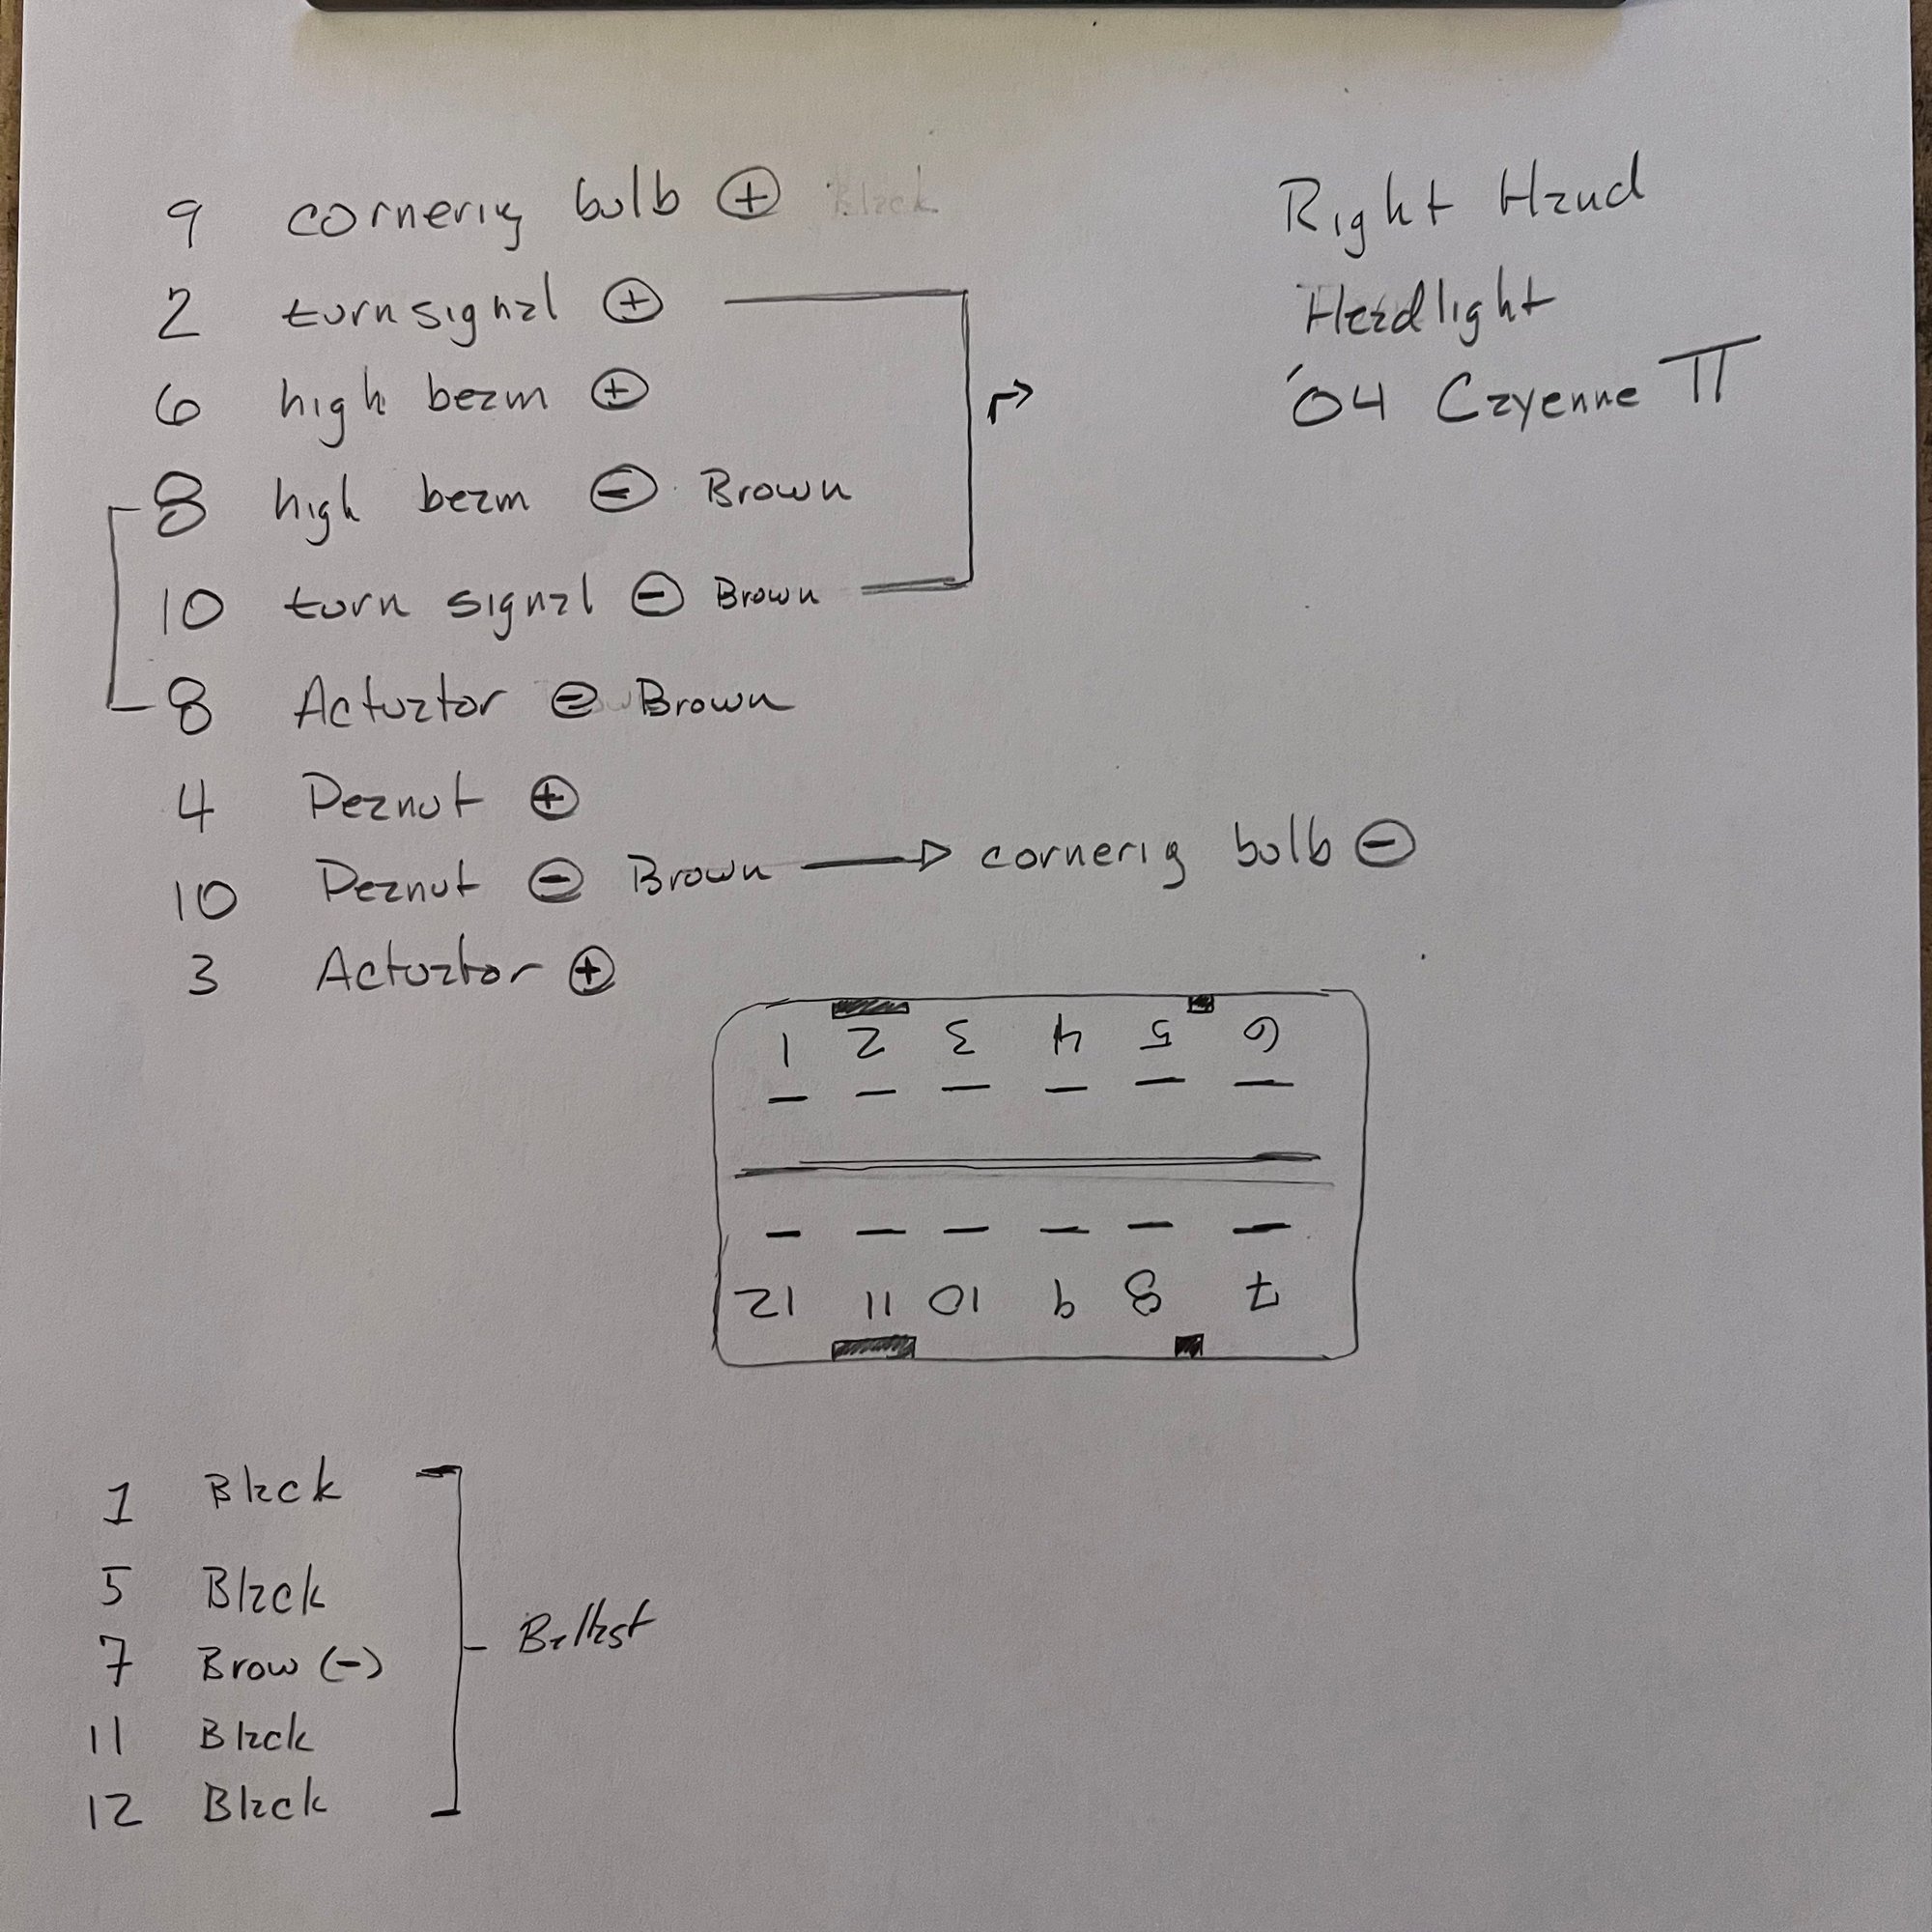 9 cornerig bulb ⊕ Black
2 turnsignal ⊕
6 high beam ⊕
8 high beam ⊖ Brown
10 turn signal ⊖ Brown
8 Actuator ⊖ Brown
4 Peanut ⊕
10 Peanut ⊖ Brown → cornerig bulb ⊖
3 Actuator ⊕
Right Hand
Headlight
'04 Cayenne TT
1 2 3 4 5 6
12 11 10 9 8 7
1 Black
5 Black
7 Brow (-)
11 Black
12 Black
Ballast